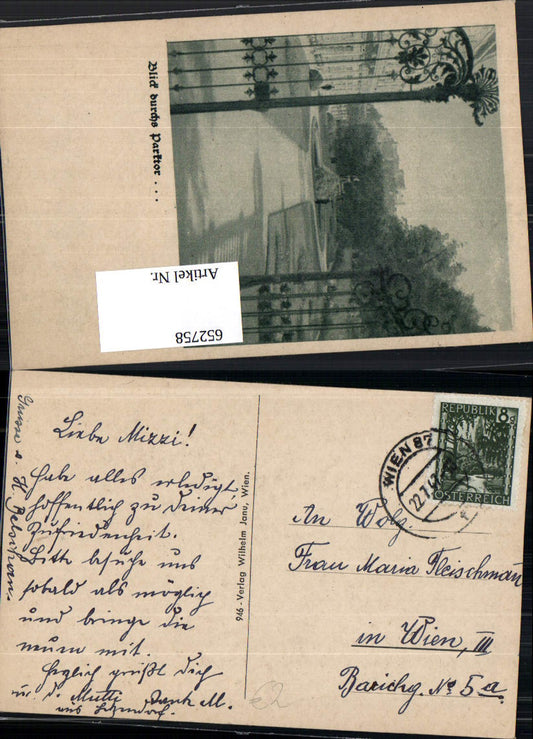 Blick durchs Parktor . . .
Artikel Nr.
652758
Liebe Mizzi!
habe alles erledigt,
hoffentlich zu deiner
Zufriedenheit.
Bitte besuche uns
sobald als möglich
und bringe die
mit.
Herzlich grüßt dich
u. d. Mutti
aus
946 - Verlag Wilhelm Janu, Wien.
REPUBLIK 8g
ÖSTERREICH
WIEN 87
An Wolg.
Frau Maria Fleischman
in Wien, III
Barichg. No 5a